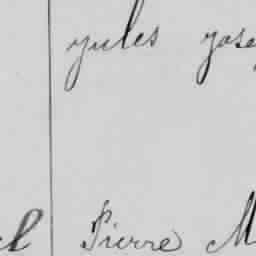 Jules Jose
Pierre M